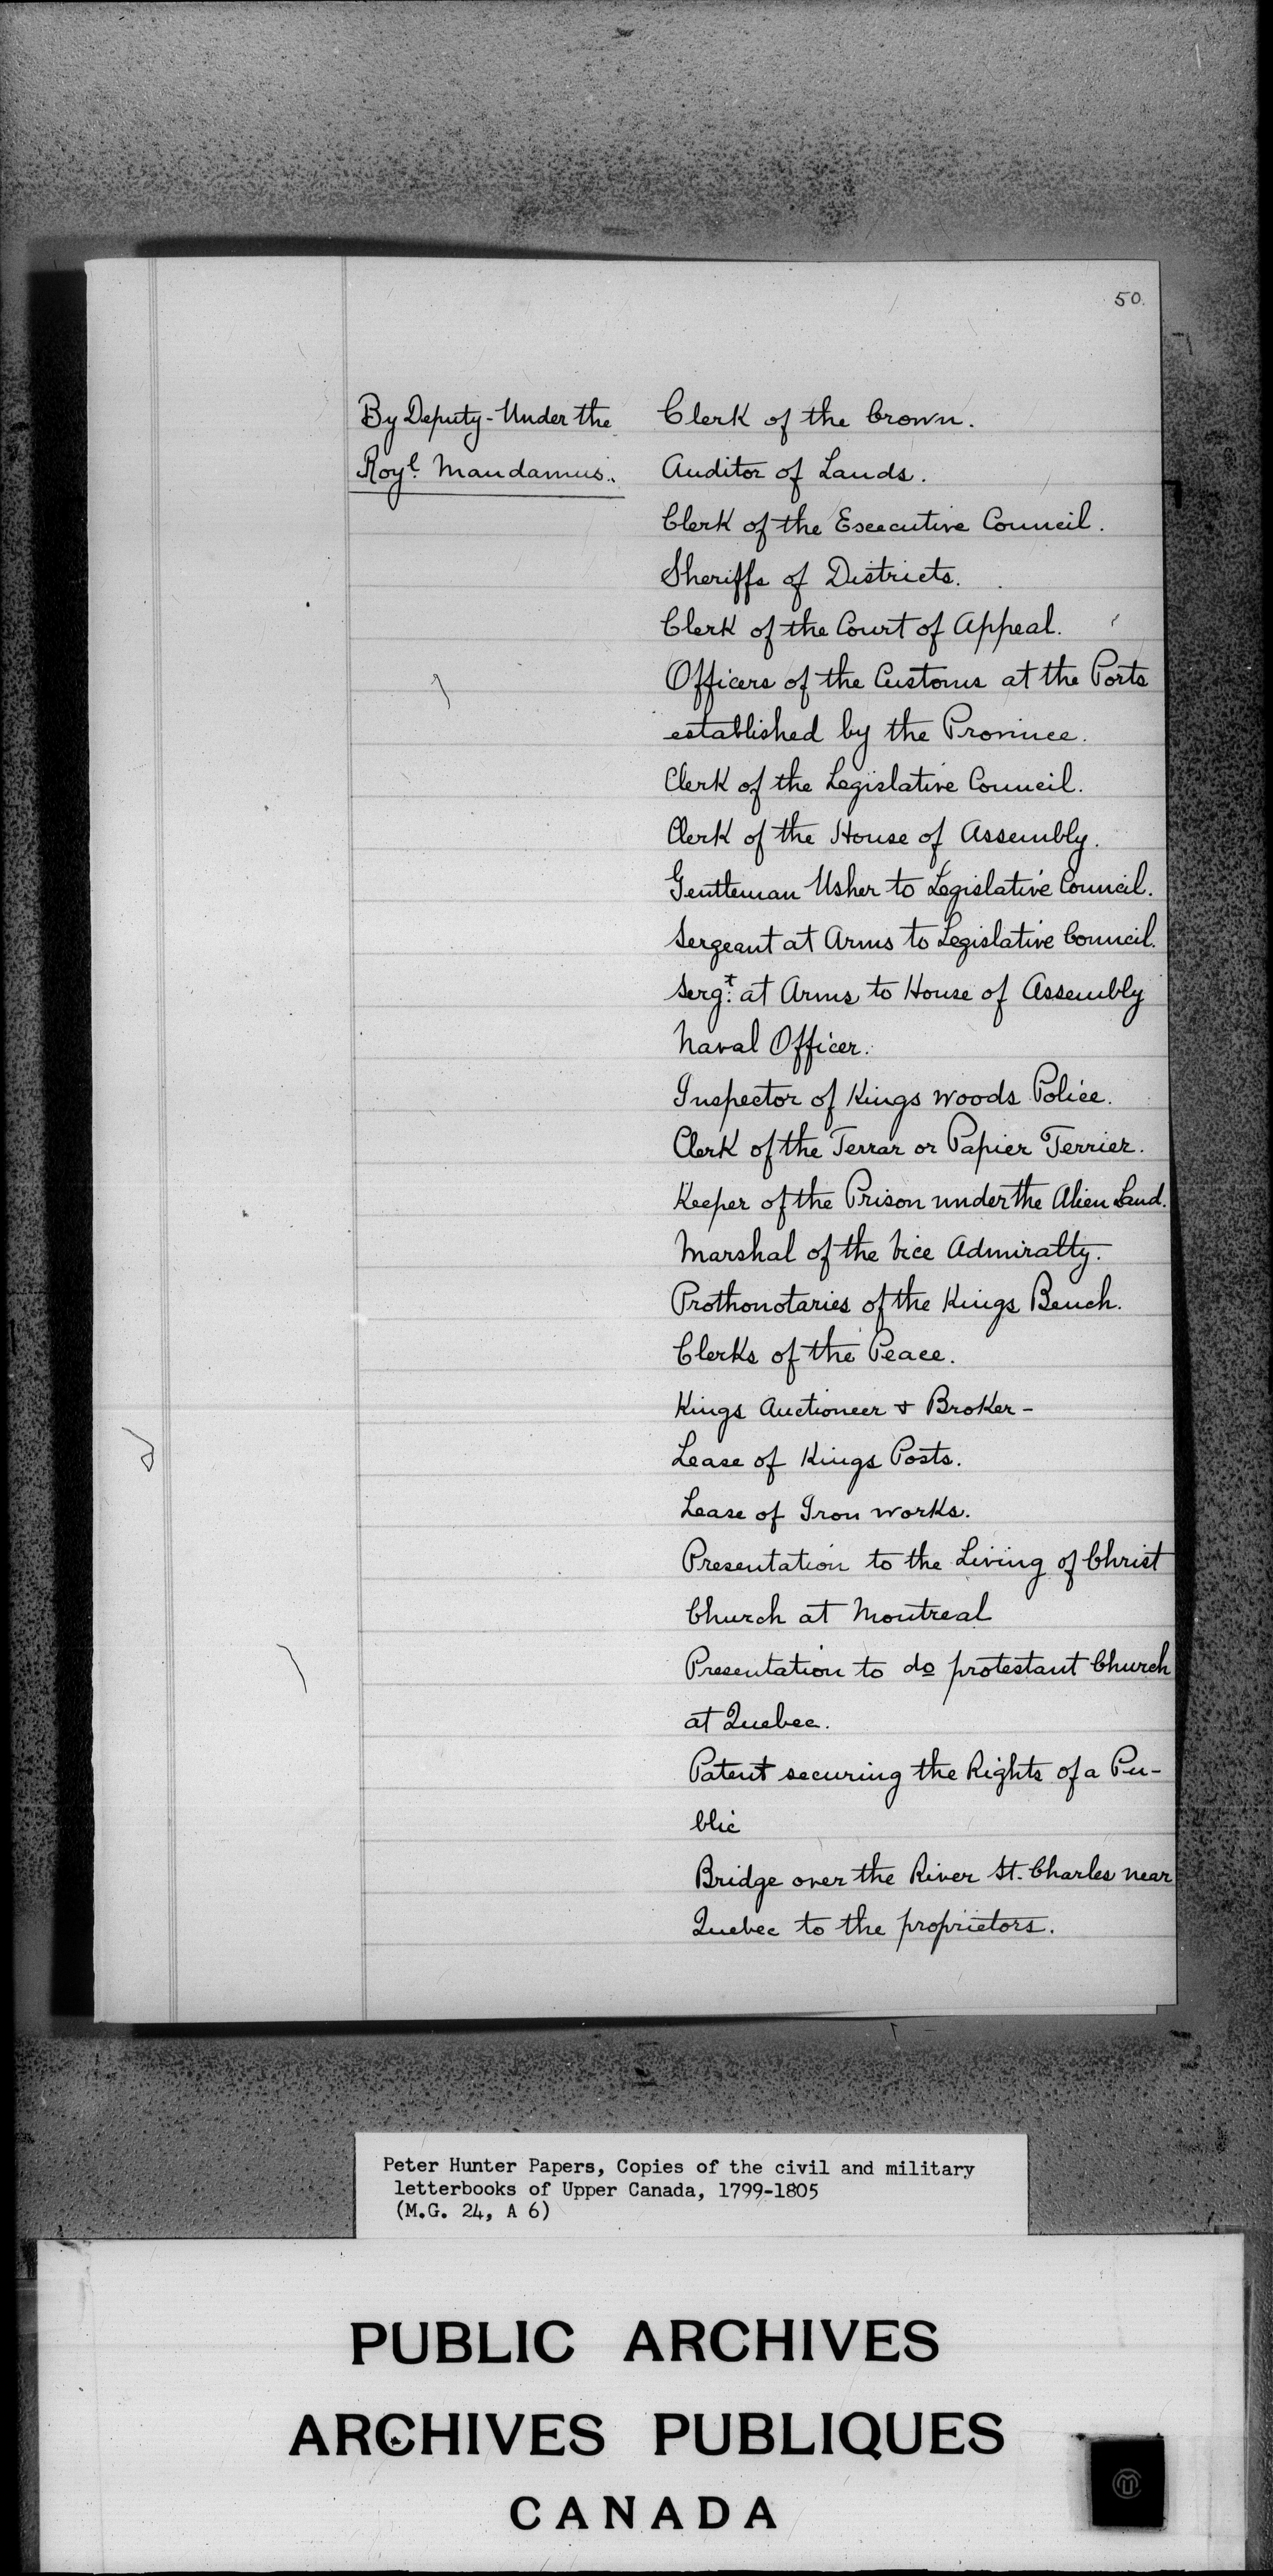 50.
By Deputy - Under the Clerk of the Crown.
Royl. Mandamus. Auditor of Lands.
Clerk of the Executive Council.
Sheriffs of Districts.
Clerk of the Court of Appeal.
Officers of the Customs at the Ports
established by the Province.
Clerk of the Legislative Council.
Clerk of the House of Assembly.
Gentleman Usher to Legislative Council.
Sergeant at Arms to Legislative Council.
Sergt. at Arms to House of Assembly
Naval Officer.
Inspector of Kings Woods Police.
Clerk of the Terrar or Papier Terrier.
Keeper of the Prison under the Alien Land.
Marshal of the Vice Admiralty.
Prothonotaries of the Kings Bench.
Clerks of the Peace.
Kings Auctioneer & Broker -
Lease of Kings Posts.
Lease of Iron works.
Presentation to the Living of Christ
Church at Montreal
Presentation to do protestant Church
at Quebec.
Patent securing the Rights of a Pu-
blic
Bridge over the River St. Charles near
Quebec to the proprietors.
Peter Hunter Papers, Copies of the civil and military
letterbooks of Upper Canada, 1799-1805
(M.G. 24, A 6)
PUBLIC ARCHIVES
ARCHIVES PUBLIQUES
CANADA